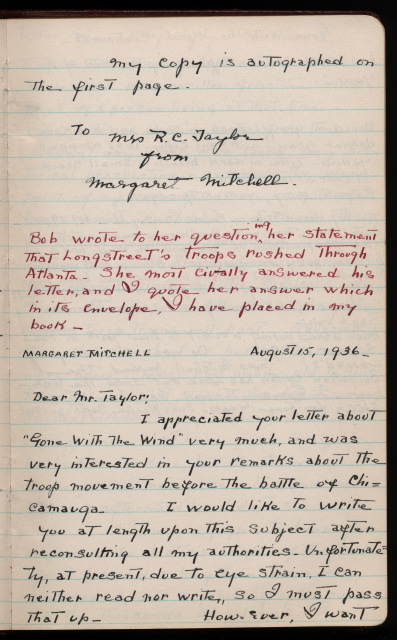 My copy is autographed on
the first page.
To Mrs R. C. Taylor
from
Margaret Mitchell.
Bob wrote to her questioning her statement
that Longstreet's troops rushed through
Atlanta. She most civally answered his
letter, and I quote her answer which
in its envelope, I have placed in my
book —
MARGARET MITCHELL August 15, 1936—
Dear Mr. Taylor:
I appreciated your letter about
"Gone With The Wind" very much, and was
very interested in your remarks about the
troop movement before the battle of Chi=
camauga— I would like to write
you at length upon this subject after
reconsulting all my authorities. Unfortunate-
ly, at present, due to eye strain, I can
neither read nor write, so I must pass
that up— However, I want